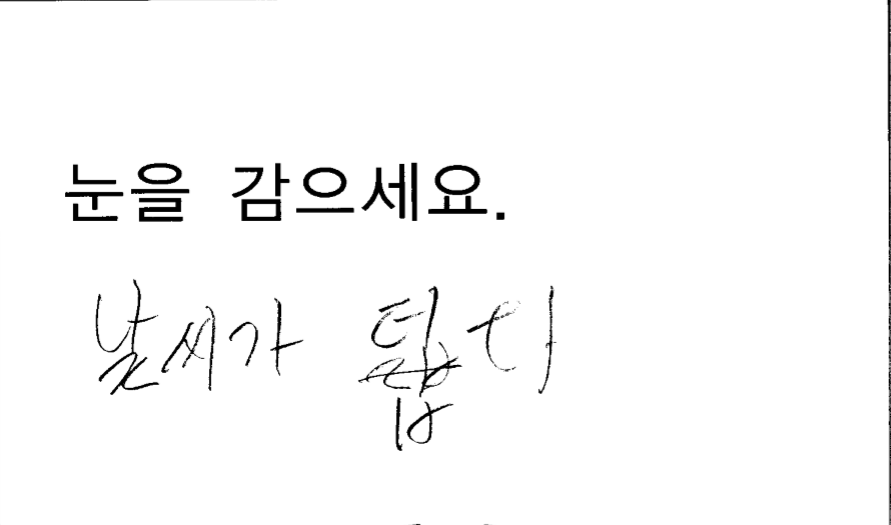 눈을 감으세요.
날씨가 덥다